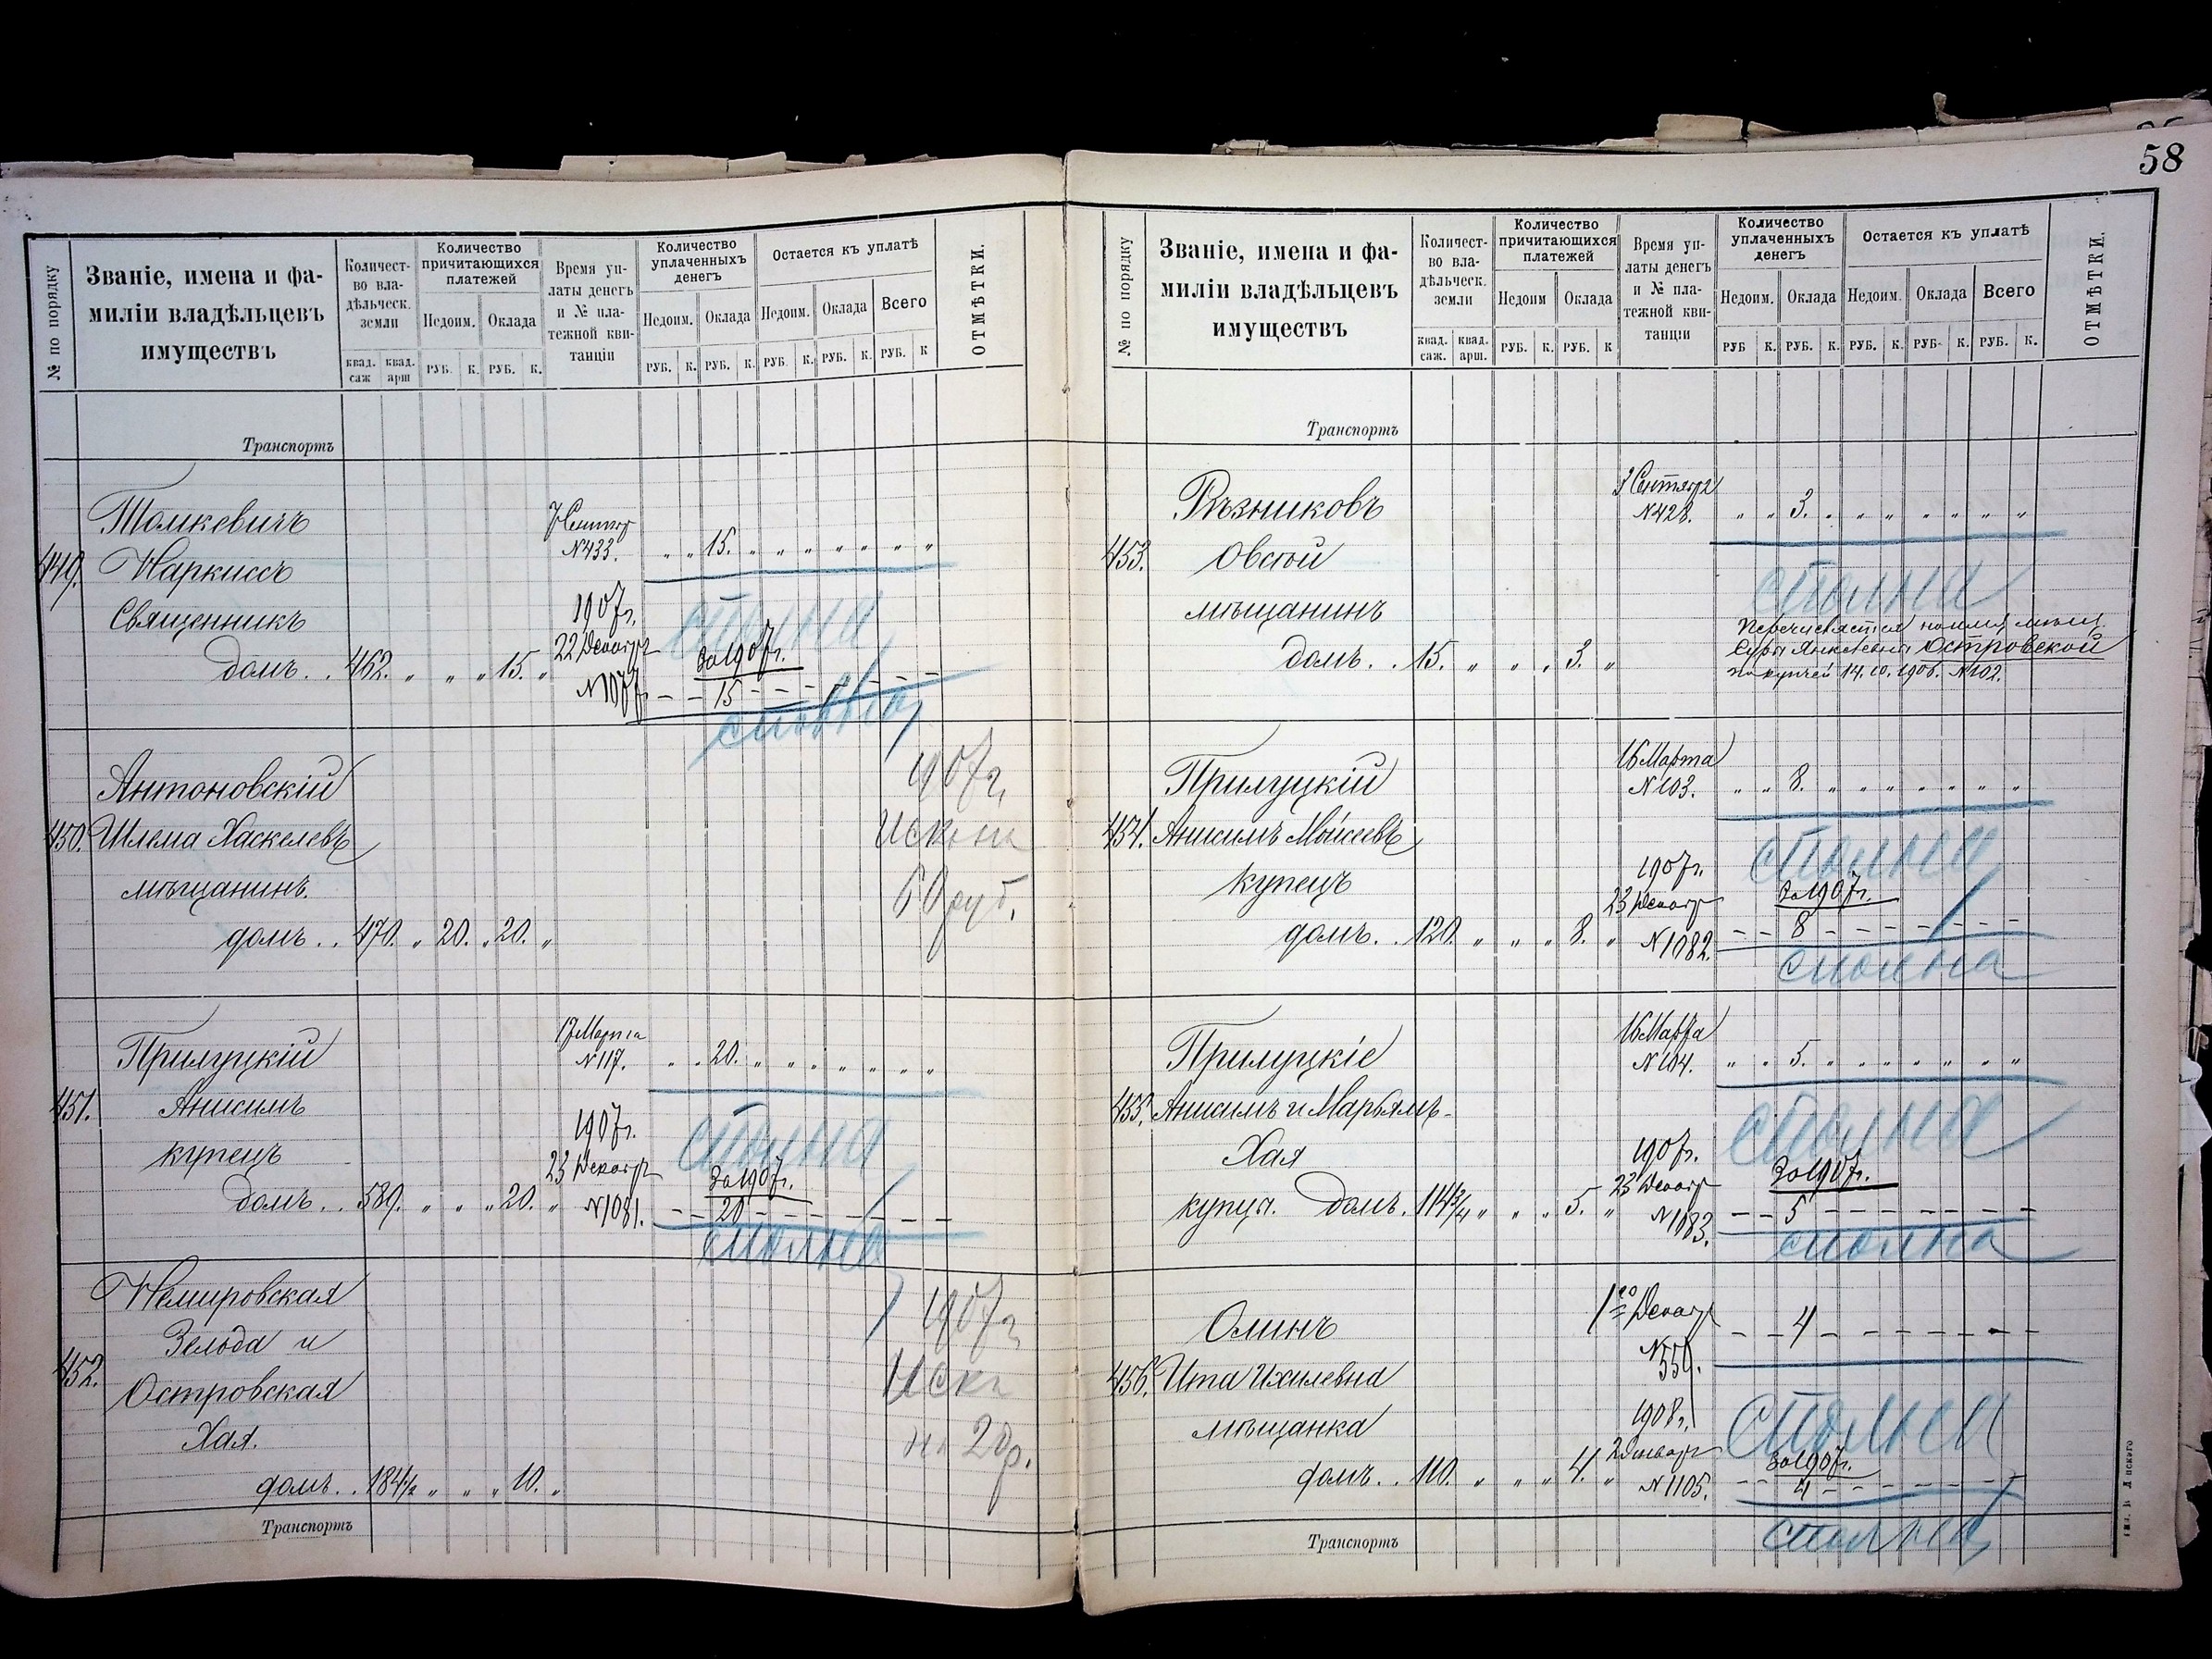 58
№ по порядку
Званіе, имена и фа-
миліи владѣльцевъ
имуществъ
Количест-
во вла-
дѣльческ.
земли
квад. саж
квад. арш
Количество
причитающихся
платежей
Недоим. Оклада
РУБ. К. РУБ. К.
Время уп-
латы денегъ
и № пла-
тежной кви-
танціи
Количество
уплаченныхъ
денегъ
Недоим. Оклада
РУБ. К. РУБ. К.
Остается къ уплатѣ
Недоим. Оклада Всего
РУБ. К. РУБ. К. РУБ. К
ОТМѢТКИ.
Транспортъ
Томкевичъ
449. Наркиссъ
Священникъ
домъ . . 462. „ „ „ 15. „
7 Сентяр
N 433. „ „ 15. „ „ „ „ „ „ „
1907г.
сполна
22 Декабр За 1907г.
N 1077 – – 15 – – – – – – –
сполна
Антоновскій
450. Шлема Хаскелевъ
мѣщанинъ.
домъ . . 470. „ 20. „ 20. „
1907г,
60 руб.
Прилуцкій
451. Анисимъ
купецъ
домъ . . 589. „ „ „ 20. „
17 Марта
N 117. „ „ 20. „ „ „ „ „ „ „
1907г.
сполна
23 Декабр За 1907г.
N 1081. – – 20 – – – – – – –
сполна
Немировская
Зельда и
452. Островская
Хая.
домъ . . 184½ „ „ „ 10. „
1907г
20р.
Транспортъ
№ по порядку
Званіе, имена и фа-
миліи владѣльцевъ
имуществъ
Количест-
во вла-
дѣльческ.
земли
квад. саж.
квад. арш.
Количество
причитающихся
платежей
Недоим Оклада
РУБ. К. РУБ. К
Время уп-
латы денегъ
и № пла-
тежной кви-
танціи
Количество
уплаченныхъ
денегъ
Недоим. Оклада
РУБ К. РУБ. К.
Остается къ уплатѣ
Недоим. Оклада Всего
РУБ. К. РУБ. К. РУБ. К.
ОТМѢТКИ.
Транспортъ
Рѣзниковъ
453. Овсѣй
мѣщанинъ
домъ . . 15. „ „ „ 3. „
3 Сентяр
N 428. „ „ 3. „ „ „ „ „ „ „
сполна
Перечисляется на имя мѣщ.
Суры Янкелевны Островской
по купчей 14. 10. 1906. N 102.
Прилуцкій
454. Анисимъ Мойсеевъ
купецъ
домъ . . 120. „ „ „ 8. „
16 Марта
N 103. „ „ 8. „ „ „ „ „ „ „
1907г.
сполна
23 Декабр За 1907г.
N 1082. – – 8 – – – – – – –
сполна
Прилуцкіе
455. Анисимъ и Марьямъ-
Хая
купцы. домъ. 114¾ „ „ „ 5. „
16 Марта
N 104. „ „ 5. „ „ „ „ „ „ „
1907г.
сполна
23 Декабр За 1907г.
N 1083. – – 5 – – – – – – –
сполна
Олинъ
456. Ита Ихилевна
мѣщанка
домъ . . 110. „ „ „ 4. „
1го Декабр
N 550. – – 4 – – – – – – –
1908г.
сполна
За 1907г.
N 1105. – – 4 – – – – – – –
сполна
Транспортъ